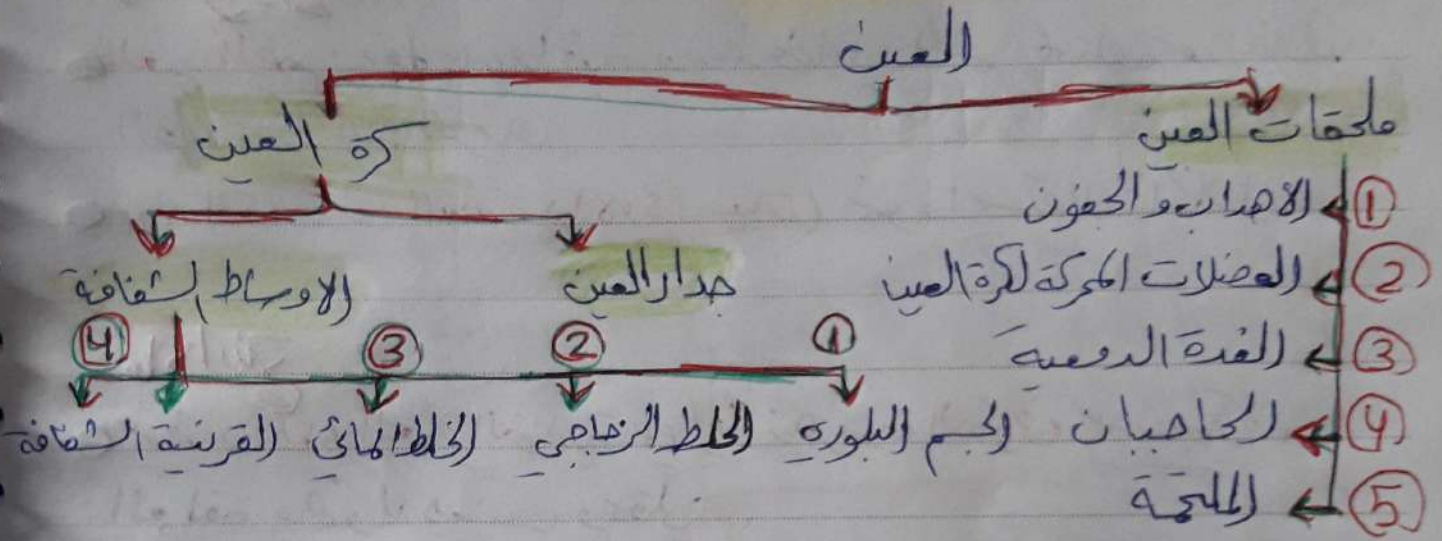 العين
ملحقات العين
كرة العين
① الاهداب و الجفون
② العضلات المحركة لكرة العين
③ الغدة الدمعية
④ الحاجبان
⑤ الملتحمة
جدار العين
الاوساط الشفافة
① الجسم البلوري
② الخلط الزجاجي
③ الخلط المائي
④ القرنية الشفافة